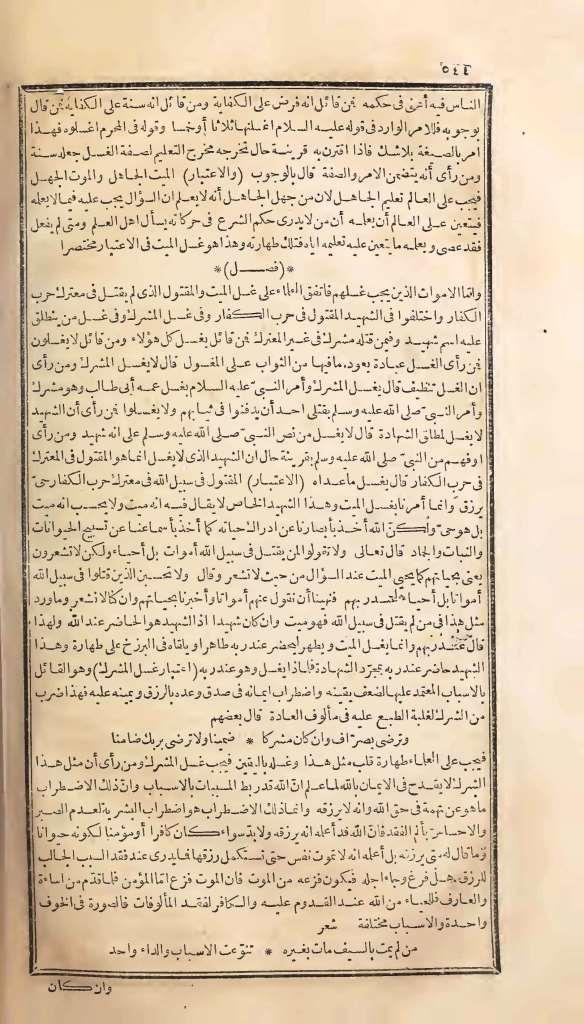 ٥٤٤
الناس فيه أعنى فى حكمه فمن قائل انه فرض على الكفاية ومن قائل انه سنة على الكفاية فمن قال
بوجوبه فللامر الوارد فى قوله عليه السلام اغسلنها ثلاثا أو خمسا وقوله فى المحرم اغسلوه فهذا
امر بالصيغة بلاشك فاذا اقترن به قرينة حال تخرجه مخرج التعليم لصفة الغسل جعله سنة
ومن رأى أنه يتضمن الامر والصفة قال بالوجوب (والاعتبار) الميت الجاهل والموت الجهل
فيجب على العالم تعليم الجاهل لان من جهل الجاهل أنه لا يعلم ان السؤال يجب عليه فيما لا يعلمه
فيتعين على العالم أن يعلمه أن من لا يدرى حكم الشرع فى حركاته يسأل اهل العلم ومتى لم يفعل
فقد عصى ويعلمه ما يتعين عليه تعليمه اياه فتلك طهارته وهذا هو غسل الميت فى الاعتبار مختصرا
*(فصل)*
واما الاموات الذين يجب غسلهم فاتفق العلماء على غسل الميت والمقتول الذى لم يقتل فى معترك حرب
الكفار واختلفوا فى الشهيد المقتول فى حرب الكفار وفى غسل المشرك وفى غسل من ينطلق
عليه اسم شهيد وفيمن قتله مشرك فى غير المعترك فمن قائل يغسل كل هؤلاء ومن قائل لا يغسلون
فمن رأى الغسل عبادة يعود ما فيها من الثواب على المغسول قال لا يغسل المشرك ومن رأى
ان الغسل تنظيف قال يغسل المشرك وأمر النبى عليه السلام بغسل عمه أبى طالب وهو مشرك
وأمر النبى صلى الله عليه وسلم بقتلى احد أن يدفنوا فى ثيابهم ولا يغسلوا فمن رأى أن الشهيد
لا يغسل لمطلق الشهادة قال لا يغسل من نص النبى صلى الله عليه وسلم على انه شهيد ومن رأى
او فهم من النبى صلى الله عليه وسلم بقرينة حال ان الشهيد الذى لا يغسل انما هو المقتول فى المعترك
فى حرب الكفار قال يغسل ماعداه (الاعتبار) المقتول فى سبيل الله فى معترك حرب الكفار حى
يرزق وانما أمرنا بغسل الميت وهذا الشهيد الخاص لا يقال فيه انه ميت ولا يحسب انه ميت
بل هو حى ولكن الله أخذ بأبصارنا عن ادراك حياته كما أخذ بأسماعنا عن تسبيح الحيوانات
والنبات والجماد قال تعالى ولا تقولوا لمن يقتل فى سبيل الله أموات بل أحياء ولكن لا تشعرون
يعنى بحياتهم كما يحيى الميت عند السؤال من حيث لا نشعر وقال ولا تحسبن الذين قتلوا فى سبيل الله
أمواتا بل أحياء عند ربهم فنهينا أن نقول عنهم أمواتا وأخبرنا بحياتهم وان كنا لا نشعر وما ورد
مثل هذا فى من لم يقتل فى سبيل الله فهو ميت وان كان شهيدا اذ الشهيد هو الحاضر عند الله ولهذا
قال عند ربهم وانما يغسل الميت ويطهر ليحضر عند ربه طاهرا ويلقاه فى البرزخ على طهارة وهذا
الشهيد حاضر عند ربه بمجرد الشهادة فلماذا يغسل وهو عند ربه (اعتبار غسل المشرك) وهو القائل
بالاسباب المعتمد عليها لضعف يقينه واضطراب ايمانه فى صدق وعده بالرزق ويمينه عليه فهذا ضرب
من الشرك لغلبة الطبع عليه فى مألوف العادة قال بعضهم
وترضى بصراف وان كان مشركا * ضمينا ولا ترضى بربك ضامنا
فيجب على العلماء طهارة قلب مثل هذا وغسله باليقين فيجب غسل المشرك ومن رأى أن مثل هذا
الشرك لا يقدح فى الايمان بالله لما علم ان الله قد ربط المسببات بالاسباب وان ذلك الاضطراب
ما هو عن تهمة فى حق الله وانه لا يرزقه وانما ذلك الاضطراب هو اضطراب البشرية لعدم الصبر
والاحساس بألم الفقد فان الله قد أعلمه انه يرزقه ولابد سواء كان كافرا أو مؤمنا لكونه حيوانا
وما قال له متى يرزقه بل أعلمه انه لا تموت نفس حتى تستكمل رزقها فما يدرى عند فقد السبب الجالب
للرزق هل فرغ وجاء اجله فيكون فزعه من الموت فان الموت فزع اما المؤمن فلما قدم من اساءة
والعارف فللحياء من الله عند القدوم عليه والكافر لفقد المألوفات فالصورة فى الخوف
واحدة والاسباب مختلفة شعر
من لم يمت بالسيف مات بغيره * تنوعت الاسباب والداء واحد
وان كان